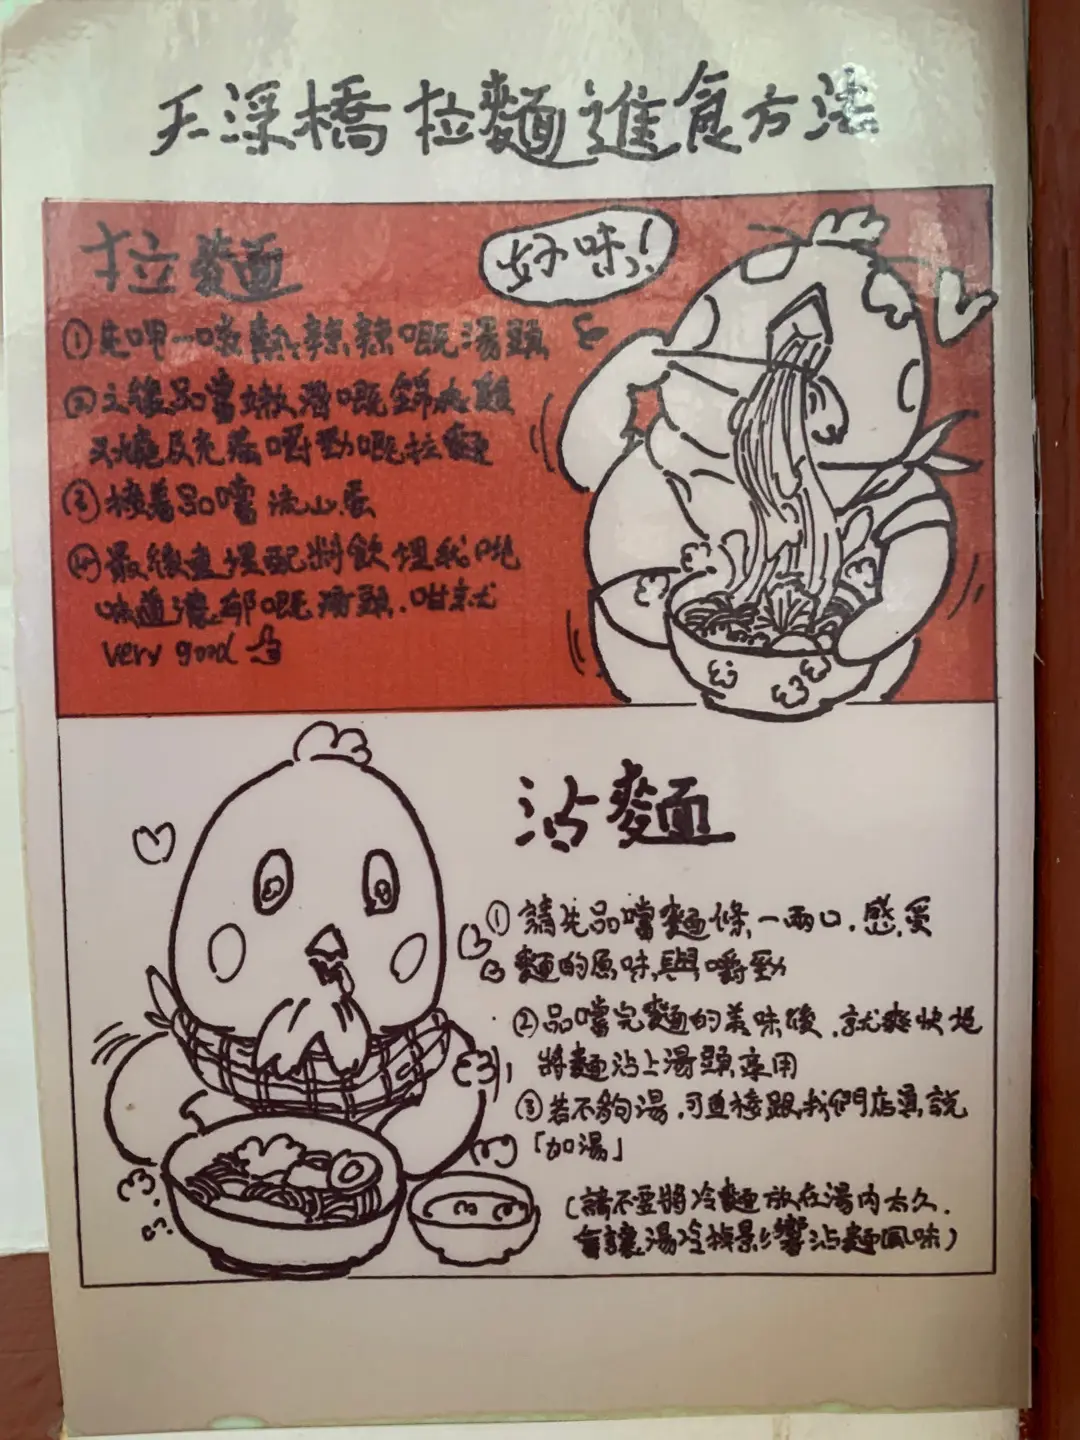 天深橋拉麵進食方法
好味!
拉麵
①先呷一啖熱辣辣嘅湯頭
②之後品嚐嫩滑嘅錦爽雞
叉燒及充滿嚼勁嘅拉麵
③接着品嚐流心蛋
④最後連埋配料飲埋我哋
味道濃郁嘅湯頭.咁就
very good
沾麵
①請先品嚐麵條,一兩口.感受
麵的原味與嚼勁
②品嚐完麵的美味後,就爽快地
將麵沾上湯頭享用
③若不夠湯,可直接跟我們店員說
「加湯」
(請不要將冷麵放在湯內太久.
會讓湯冷掉影響沾麵風味)